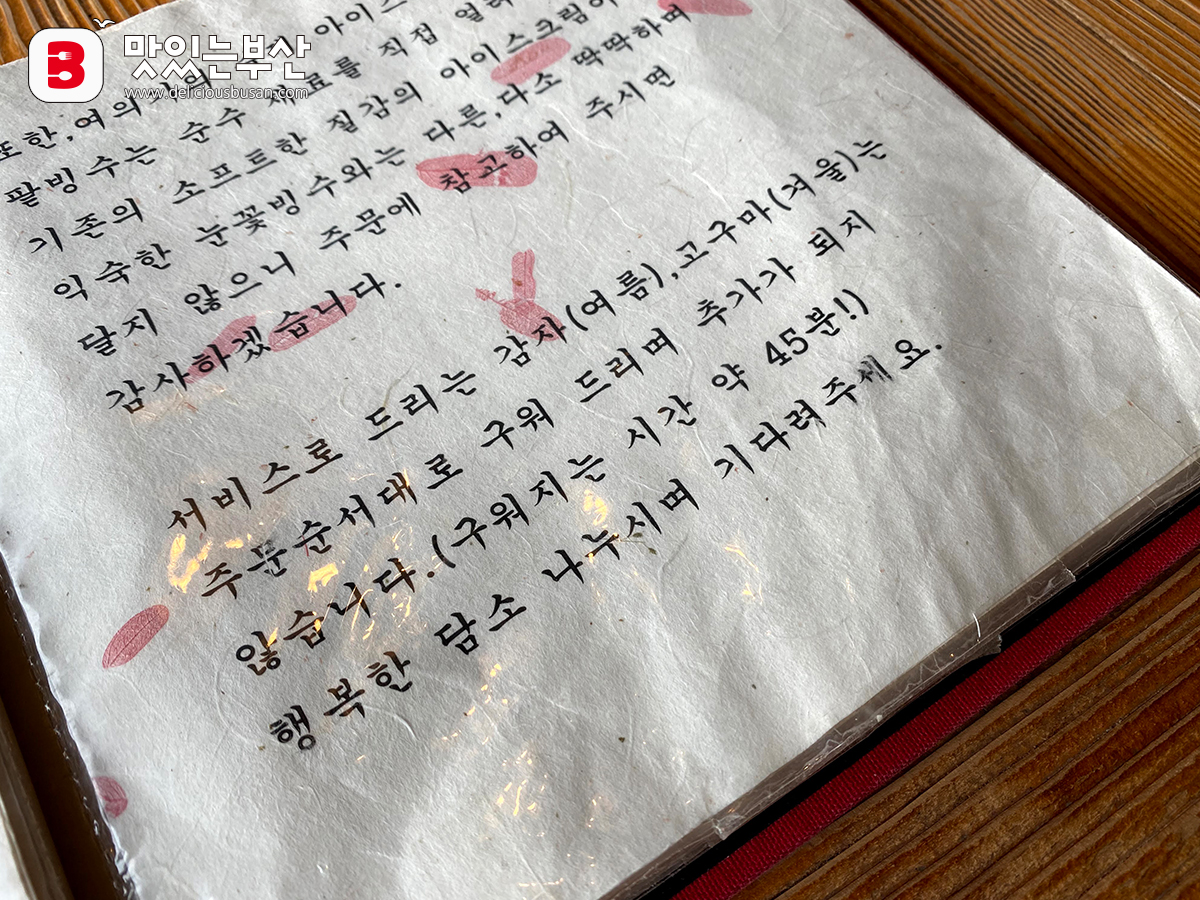 B 맛있는부산
www.deliciousbusan.com
아이스
또한,여의
팥빙수는 순수 재료를 직접 얼려
기존의 소프트한 질감의 아이스크림이
익숙한 눈꽃빙수와는 다른,다소 딱딱하며
달지 않으니 주문에 참고하여 주시면
감사하겠습니다.
서비스로 드리는 감자(여름),고구마(겨울)는
주문순서대로 구워 드리며 추가가 되지
않습니다.(구워지는 시간 약 45분!)
행복한 담소 나누시며 기다려주세요.